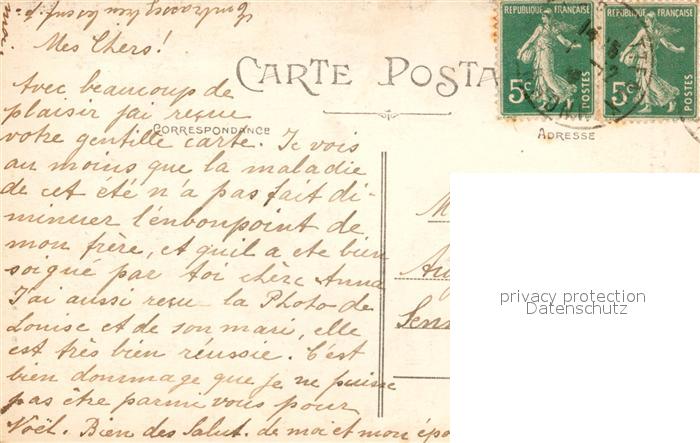 Embrassez bien
moi
Mes Chers!
CARTE POSTA
RÉPUBLIQUE FRANÇAISE
5c
POSTES
RÉPUBLIQUE FRANÇAISE
5c
POSTES
CORRESPONDANCE
ADRESSE
Avec beaucoup de
plaisir j'ai reçue
votre gentille carte. Je vois
au moins que la maladie
de cet été n'a pas fait di-
minuer l'énbonpoint de
mon frère, et qu'il a ete bien
soigné par toi chère Anna
J'ai aussi reçu la Photo de
Louise et de son mari, elle
est très bien réussie. C'est
bien dommage que je ne puisse
pas être parmi vous pour
Noël. Bien des Salut. de moi et mon épo
M
Senn
privacy protection
Datenschutz